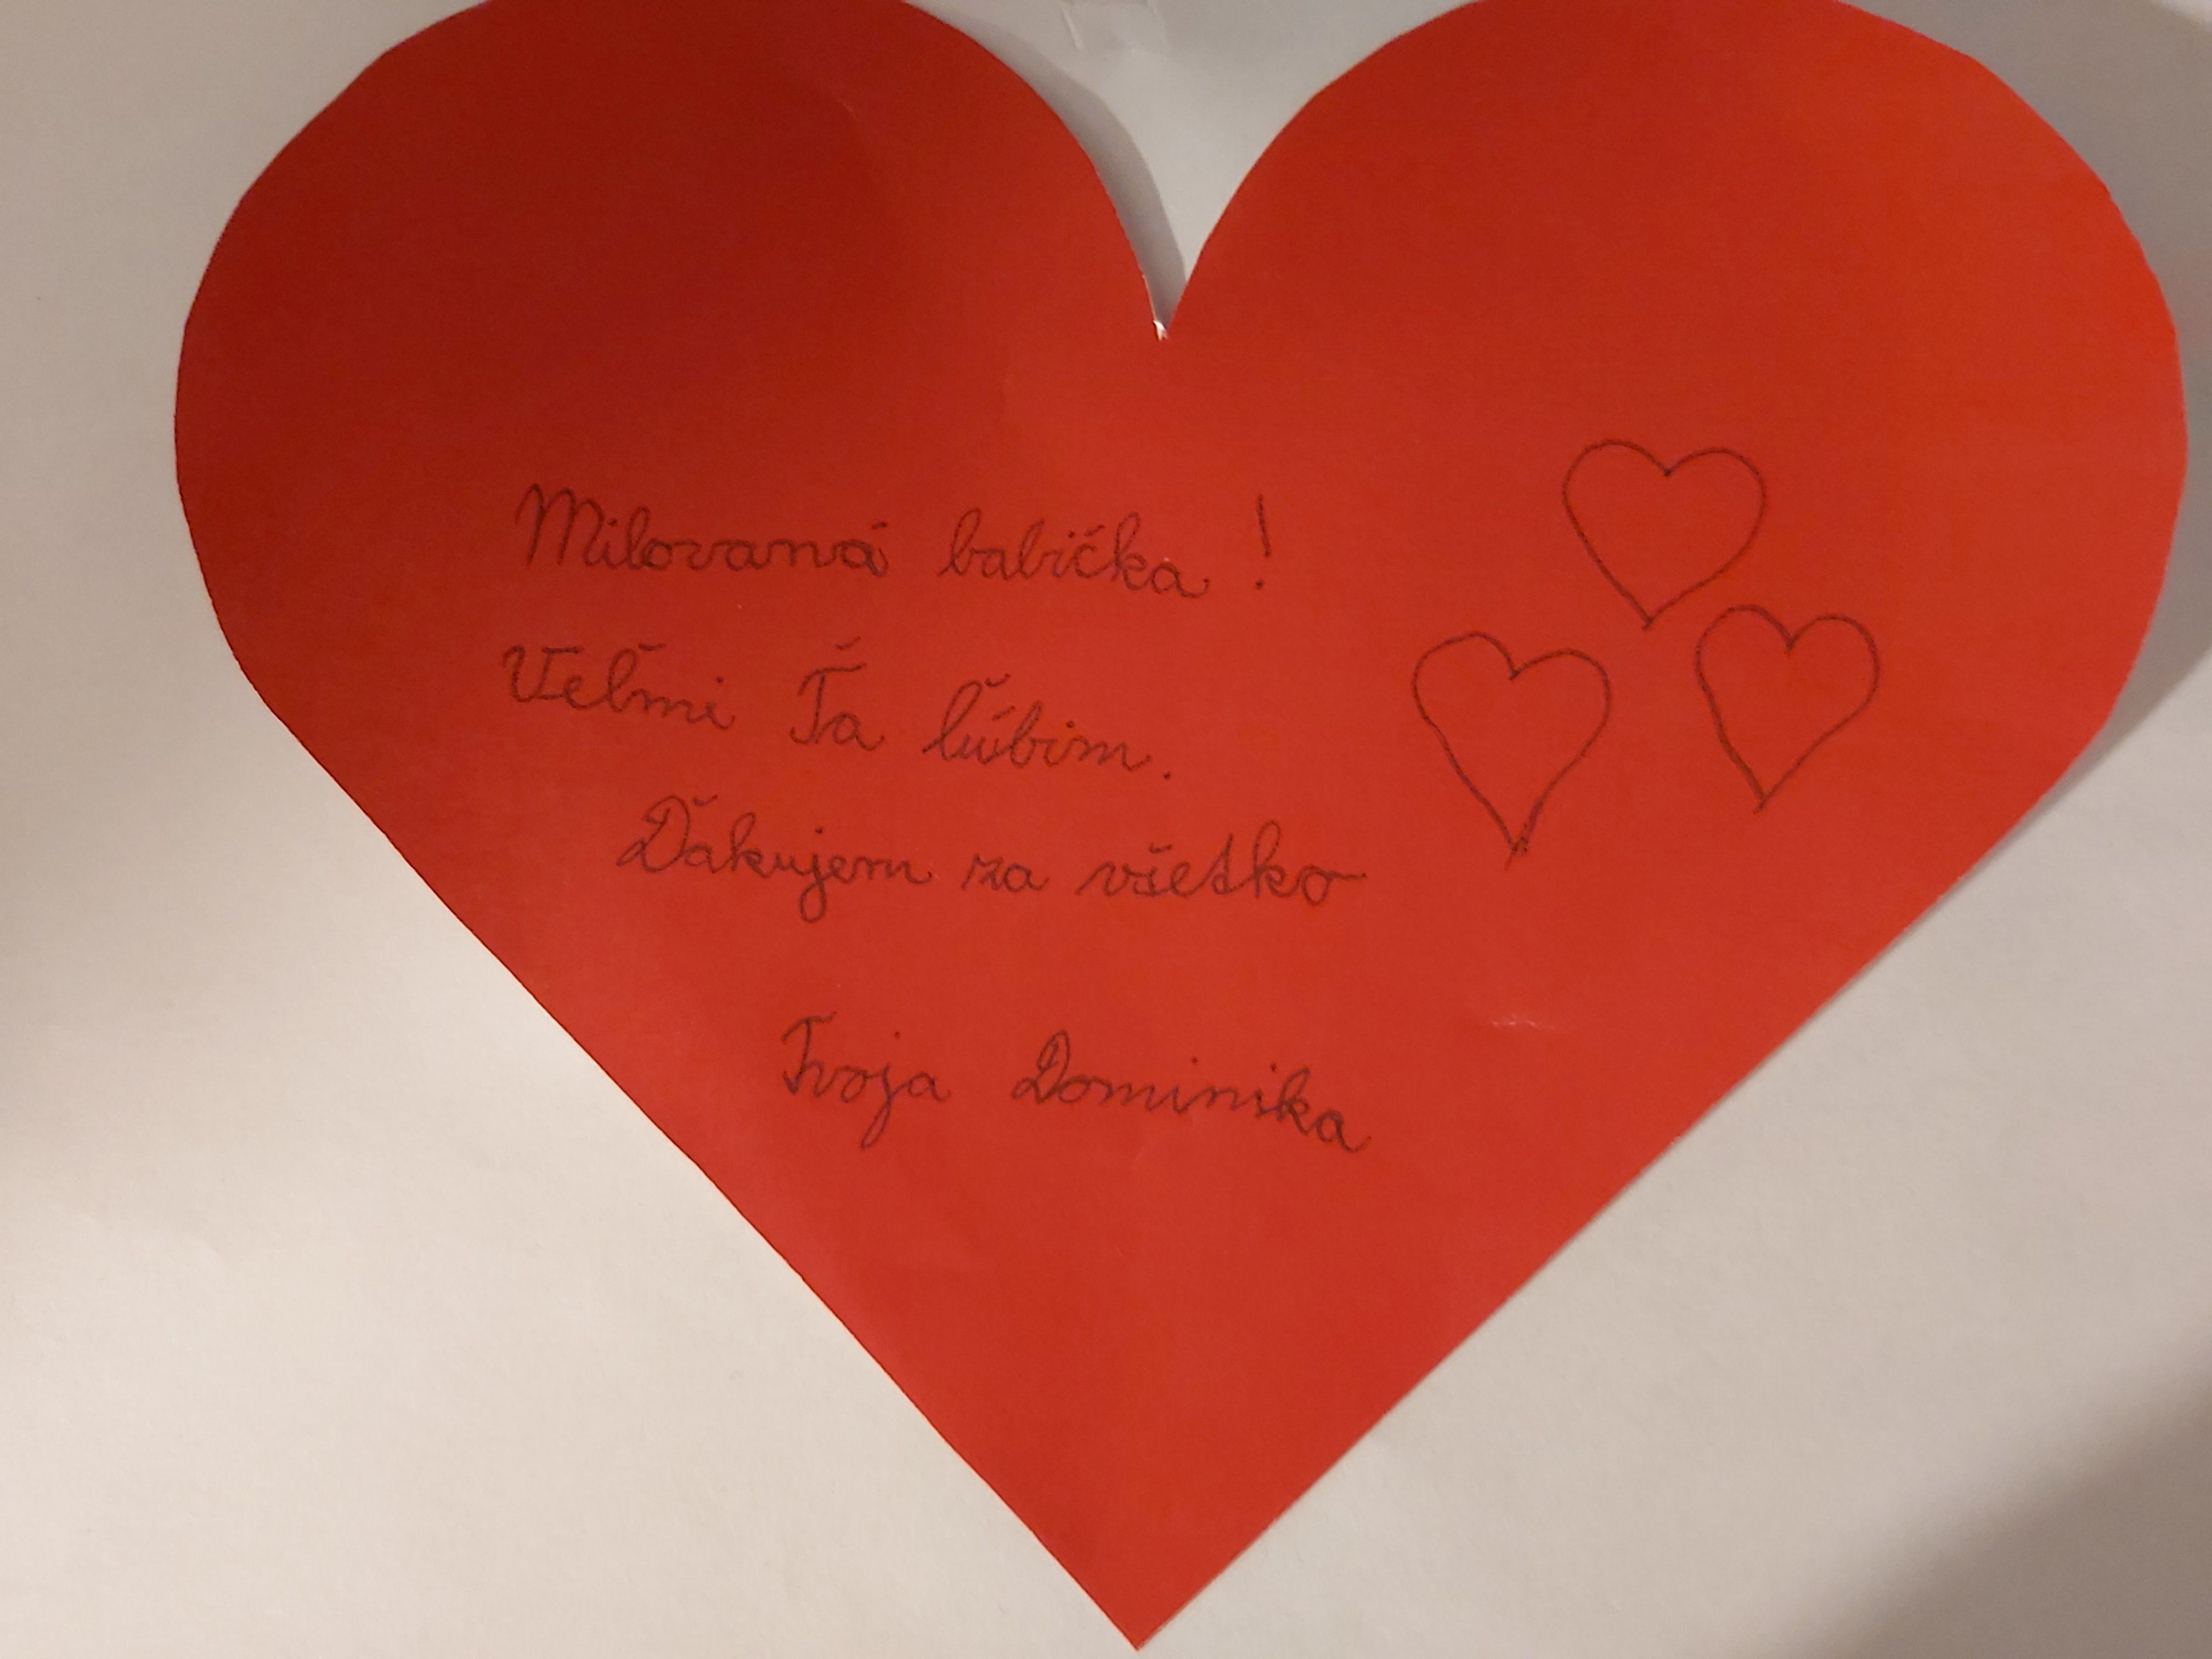 Milovaná babička!
Veľmi Ťa ľúbim.
Ďakujem za všetko
Tvoja Dominika